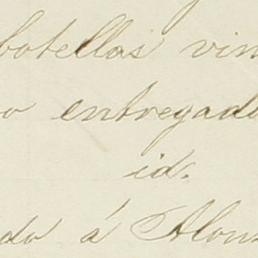 botellas vin
o entregado
id.
do á Alon